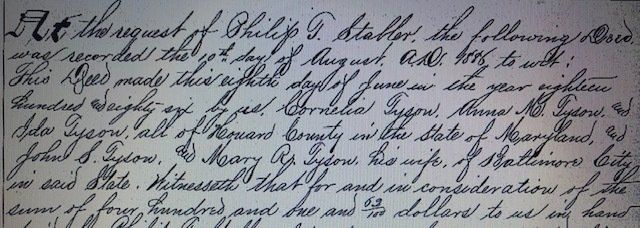 At the request of Philip T. Stabler, the following Deed
was recorded the 10th day of August, A.D. 1886, to wit:
This Deed made this eighth day of June in the year eighteen
hundred and eighty six by us, Cornelia Tyson, Anna M. Tyson, and
Ida Tyson, all of Howard County in the State of Maryland, and
John S. Tyson, and Mary R. Tyson, his wife, of Baltimore City
in said State. Witnesseth that for and in consideration of the
sum of four hundred and one and 62/100 dollars to us in hand
Philip T. Stabler